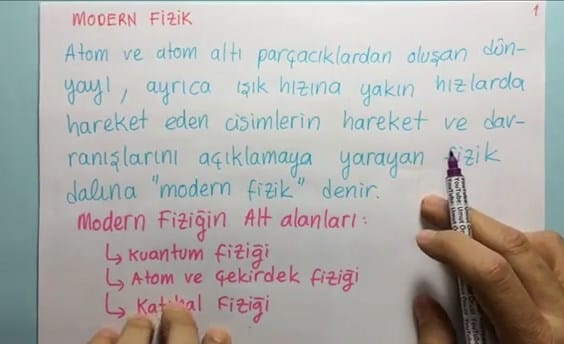 MODERN FİZİK
1
Atom ve atom altı parçacıklardan oluşan dün-
yayı, ayrıca ışık hızına yakın hızlarda
hareket eden cisimlerin hareket ve dav-
ranışlarını açıklamaya yarayan fizik
dalına "modern fizik" denir.
Modern Fiziğin Alt alanları:
↳ Kuantum fiziği
↳ Atom ve Çekirdek fiziği
↳ Katıhal Fiziği
YouTube: Umut